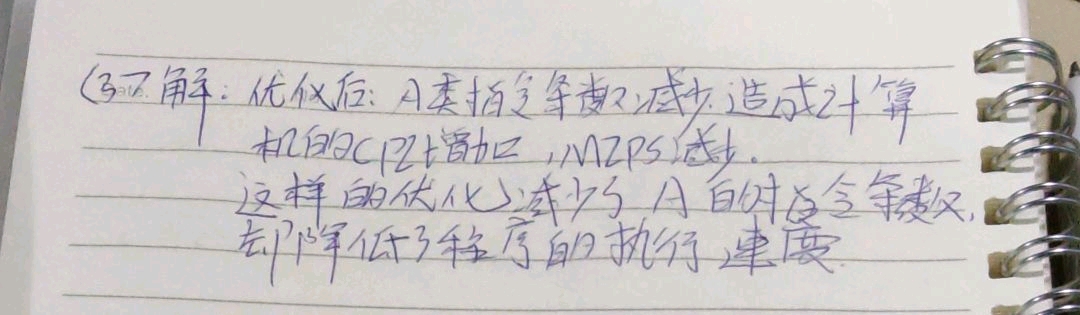 (3) 解：优化后：A类指令条数减少，造成计算
机的CPI增加，MIPS减少。
这样的优化减少了A的指令条数，
却降低了程序的执行速度